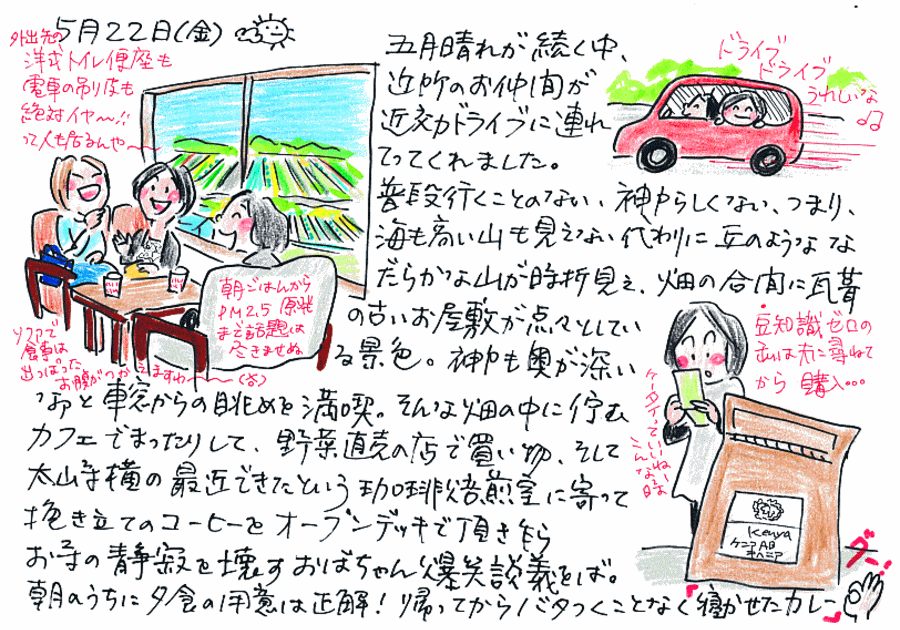 5月22日(金)
外出先の
洋式トイレ便座も
電車の吊り革も
絶対イヤ〜!!
って人も居るんや〜
五月晴れが続く中、
近所のお仲間が
近郊ドライブに連れ
てってくれました。
ドライブ
ドライブ
うれしいな
♪♫
普段行くことのない、神戸らしくない、つまり、
海も高い山も見えない代わりに丘のようなな
だらかな山が時折見え、畑の合間に瓦葺
の古いお屋敷が点々としてい
る景色。神戸も奥が深い
なあと車窓からの眺めを満喫。そんな畑の中に佇む
カフェでまったりして、野菜直売の店で買い物、そして
太山寺横の最近できたという珈琲焙煎室に寄って
挽き立てのコーヒーをオープンデッキで頂きながら
お寺の静寂を壊すおばちゃん爆笑談義をば。
朝のうちに夕食の用意は正解!帰ってからバタつくことなく『寝かせたカレー』
朝ごはんから
PM2.5 原発
まで話題は
尽きませぬ
ソファで
食事は
出っぱった
お腹がつかえますわ〜
豆知識ゼロの
私は夫に尋ねて
から購入…
ケータイっていいね
こんな時
Kenya
ケニアAB
グー!